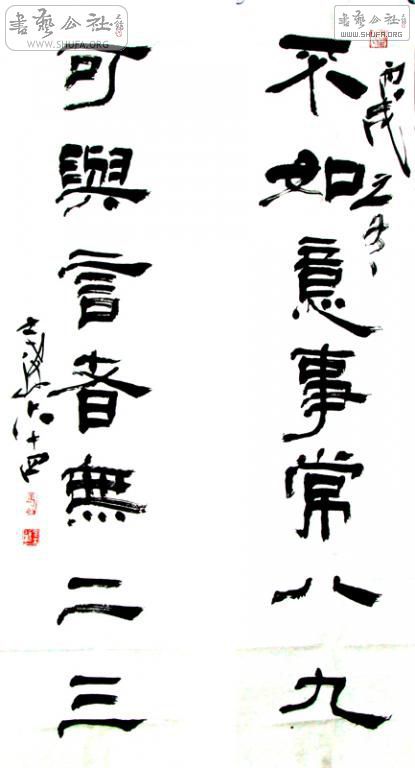 不如意事常八九
丙戌之冬
可與言者無二三
書藝公社
WWW.SHUFA.ORG
書藝公社
WWW.SHUFA.ORG